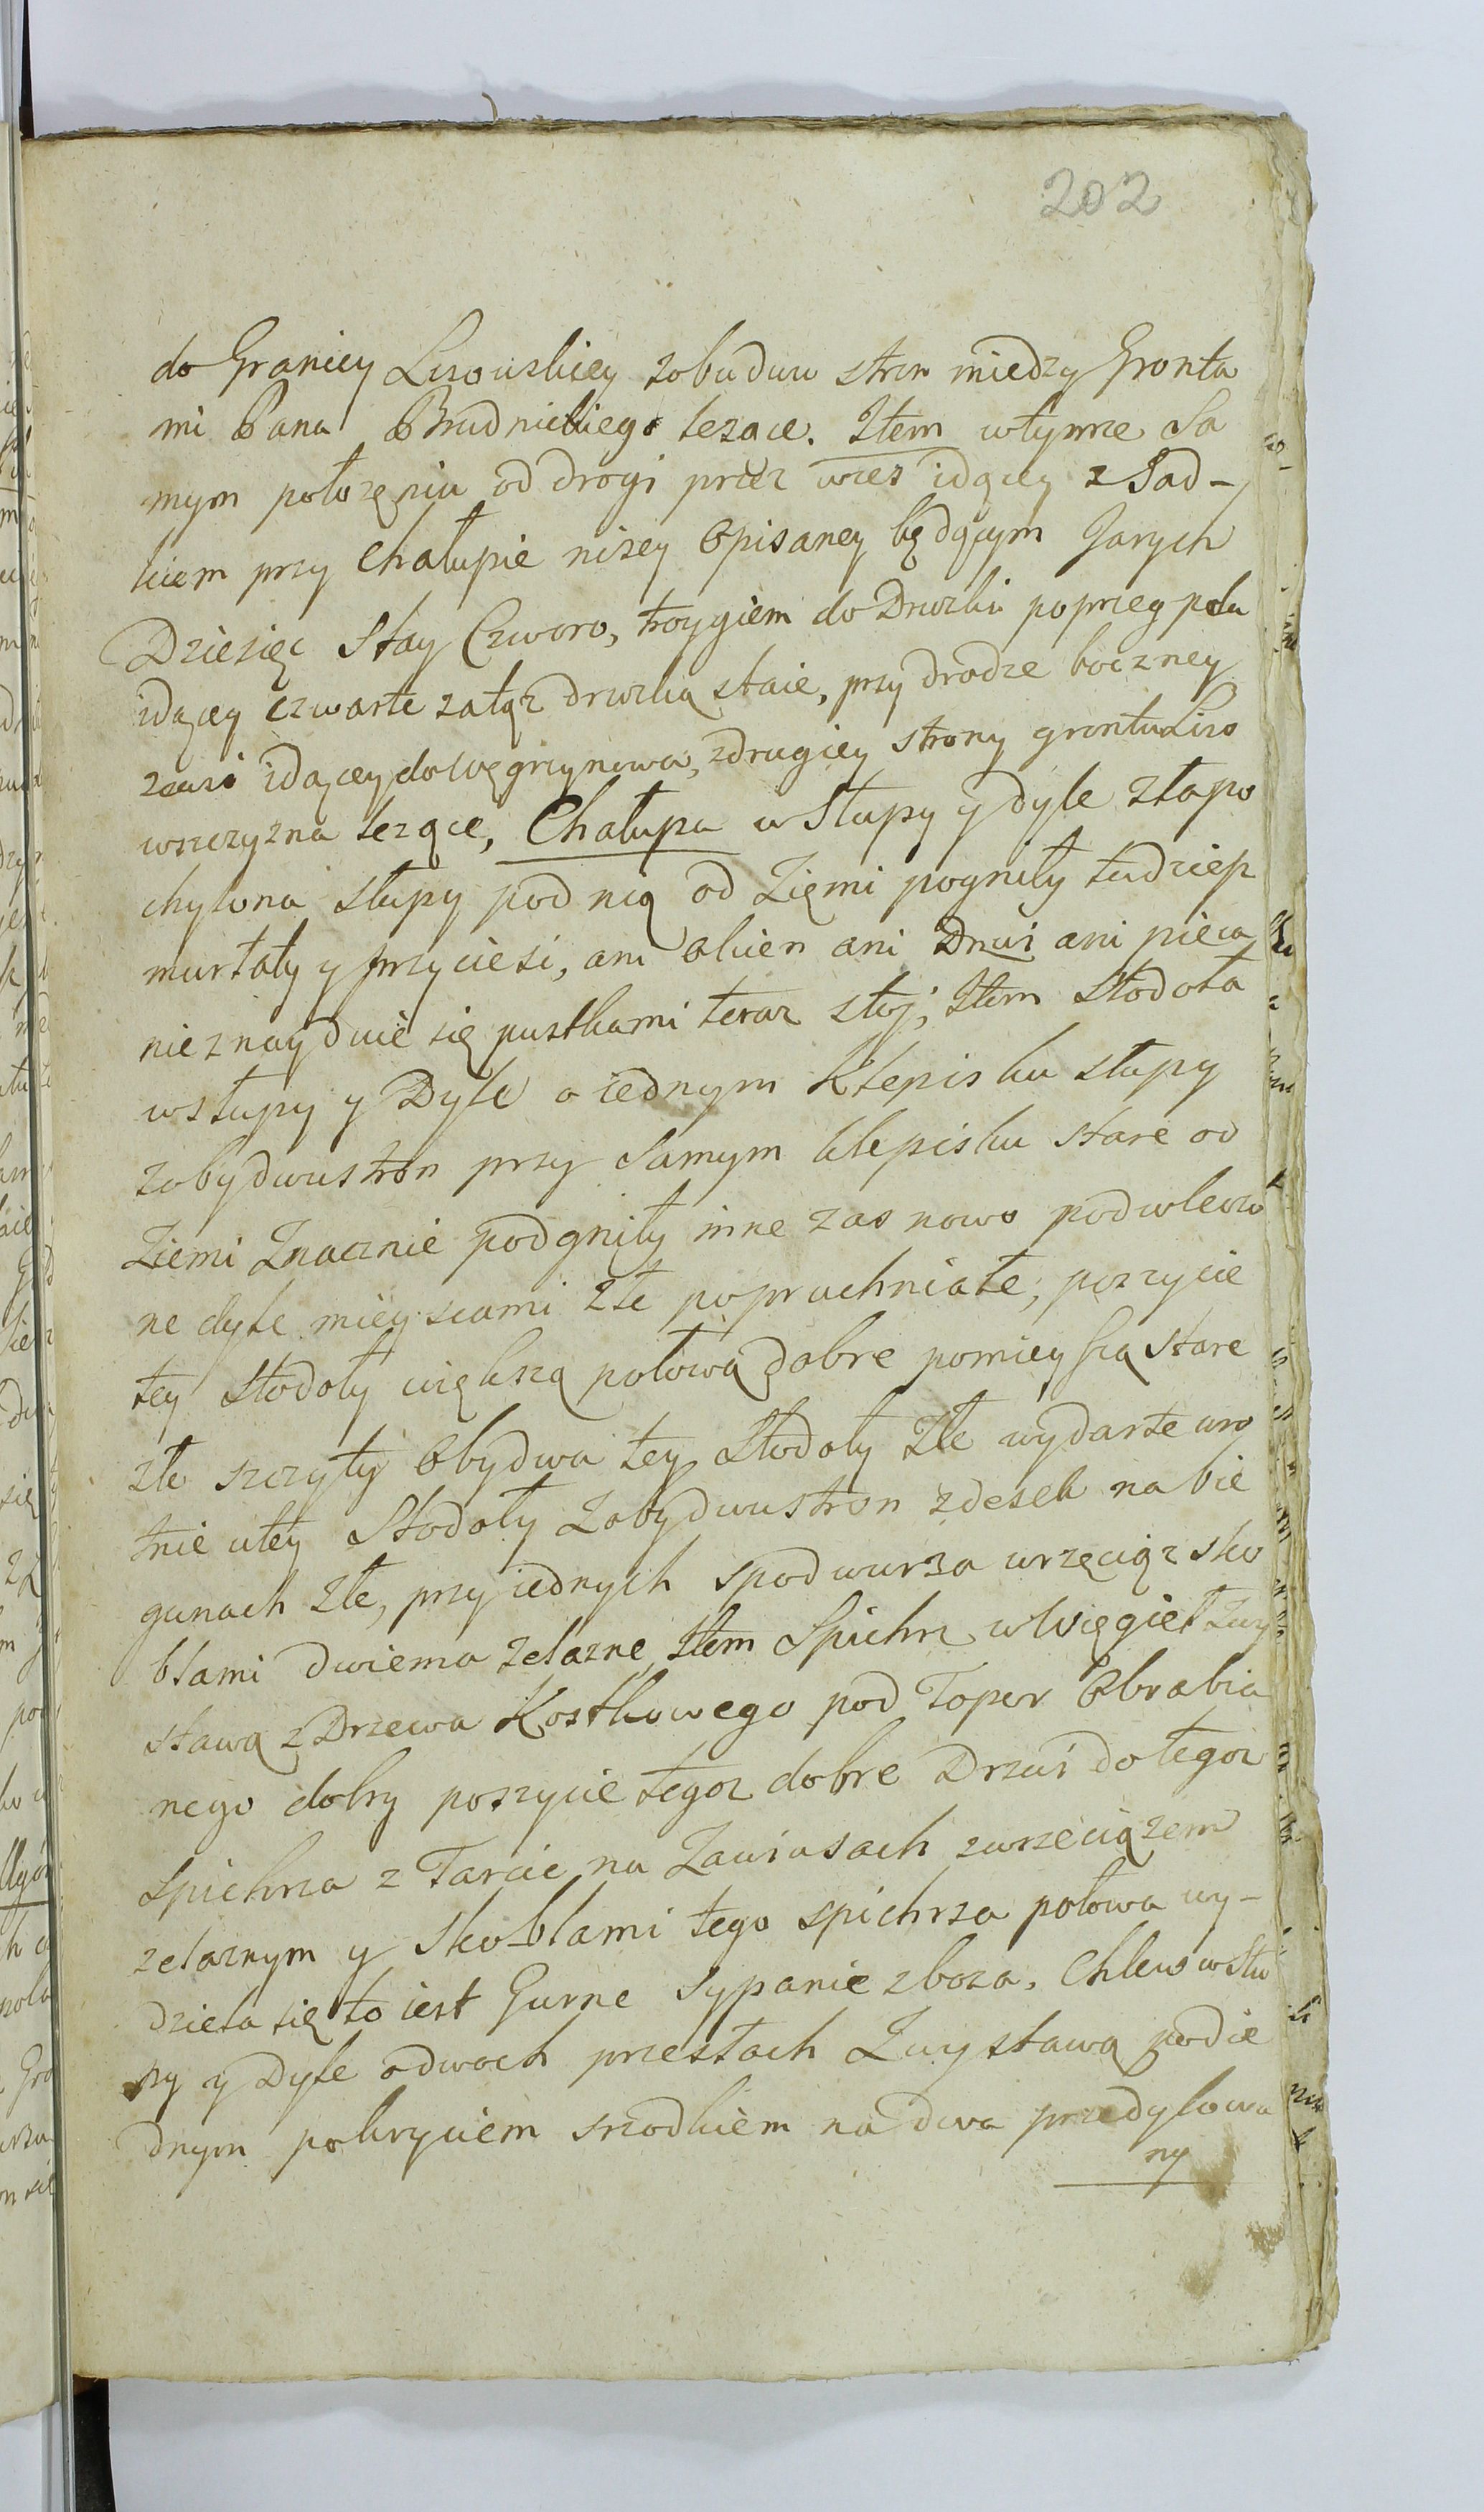 202
do Granicy Lisowskiey zobudwu stron miedzy Gronta
mi Pana Brudnickiego lezące. Item wtymze Sa
mym połozęniu od drogi przez wies idącey z Sad-
kiem przy Chałupie nizey Opisaney będącym Jarych
Dziesięc Stay Czworo, troygiem do Drozki poprzeg pola
idącey czwarte zatąz drozką staie, przy drodze boczney
zaś idącey do Węgrzynowa, zdrugiey strony grontu Liso
wszczyzna lezące, Chałupa w Słupy y dyle zła po
chylona słupy pod nią od Ziemi pogniły tudziesz
murłaty y przyciesi, ani okien ani Drzwi ani pieca
nieznayduie się pustkami teraz stoj; Item Stodoła
wsłupy y Dyle o iednym Klepisku słupy
zobydwustron przy samym klepisku stare od
Ziemi Znacznie podgniły inne zas nowo podwleczo
ne dyle mieyscami złe poprochniałe; poszycie
tey Stodoły większą połową dobre pomieyszą stare
złe szczyty Obydwa tey Stodoły Złe wydarte wro
tnie utey Stodoły Zobydwustron zdesek na bie
gunach złe, przy iednych spodwurza wrzęciąz sko
blami dwiema zelazne, Item Spichrz wWęgieł Zwy
stawą z Drzewa Kostkowego pod Topor Obrabia
nego dobry poszycie tegoz dobre Drzwi do tegoz
Spichrza z Tarcic na Zawiasach zwrzeciązem
zelaznym y Skoblami tego spichrza połowa wy-
dziela się to iest Gurne sypanie zboza, Chlew w Słu
py y Dyle odwoch przesłach Zwystawą pod ie
dnym pokryciem srzodkiem na dwa przedylowa
ny